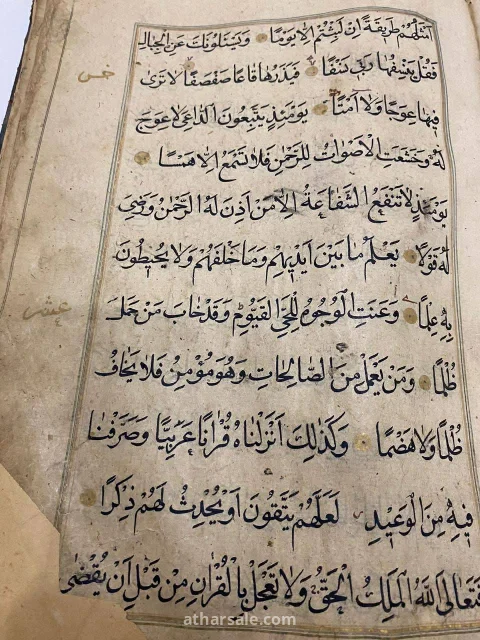 اَمْثَلُهُمْ طَرِيقَةً اِنْ لَبِثْتُمْ اِلَّا يَوْمًا وَيَسْئَلُونَكَ عَنِ الْجِبَالِ
فَقُلْ يَنْسِفُهَا رَبِّى نَسْفًا فَيَذَرُهَا قَاعًا صَفْصَفًا لَا تَرٰى
خمس
فِيهَا عِوَجًا وَلَا اَمْتًا يَوْمَئِذٍ يَتَّبِعُونَ الدَّاعِىَ لَا عِوَجَ
لَهُ وَخَشَعَتِ الْاَصْوَاتُ لِلرَّحْمٰنِ فَلَا تَسْمَعُ اِلَّا هَمْسًا
يَوْمَئِذٍ لَا تَنْفَعُ الشَّفَاعَةُ اِلَّا مَنْ اَذِنَ لَهُ الرَّحْمٰنُ وَرَضِىَ
لَهُ قَوْلًا يَعْلَمُ مَا بَيْنَ اَيْدِيهِمْ وَمَا خَلْفَهُمْ وَلَا يُحِيطُونَ
بِهِ عِلْمًا وَعَنَتِ الْوُجُوهُ لِلْحَىِّ الْقَيُّومِ وَقَدْ خَابَ مَنْ حَمَلَ
عشر
ظُلْمًا وَمَنْ يَعْمَلْ مِنَ الصَّالِحَاتِ وَهُوَ مُؤْمِنٌ فَلَا يَخَافُ
ظُلْمًا وَلَا هَضْمًا وَكَذٰلِكَ اَنْزَلْنَاهُ قُرْاٰنًا عَرَبِيًّا وَصَرَّفْنَا
فِيهِ مِنَ الْوَعِيدِ لَعَلَّهُمْ يَتَّقُونَ اَوْ يُحْدِثُ لَهُمْ ذِكْرًا
فَتَعَالَى اللّٰهُ الْمَلِكُ الْحَقُّ وَلَا تَعْجَلْ بِالْقُرْاٰنِ مِنْ قَبْلِ اَنْ يُقْضٰى
atharsale.com